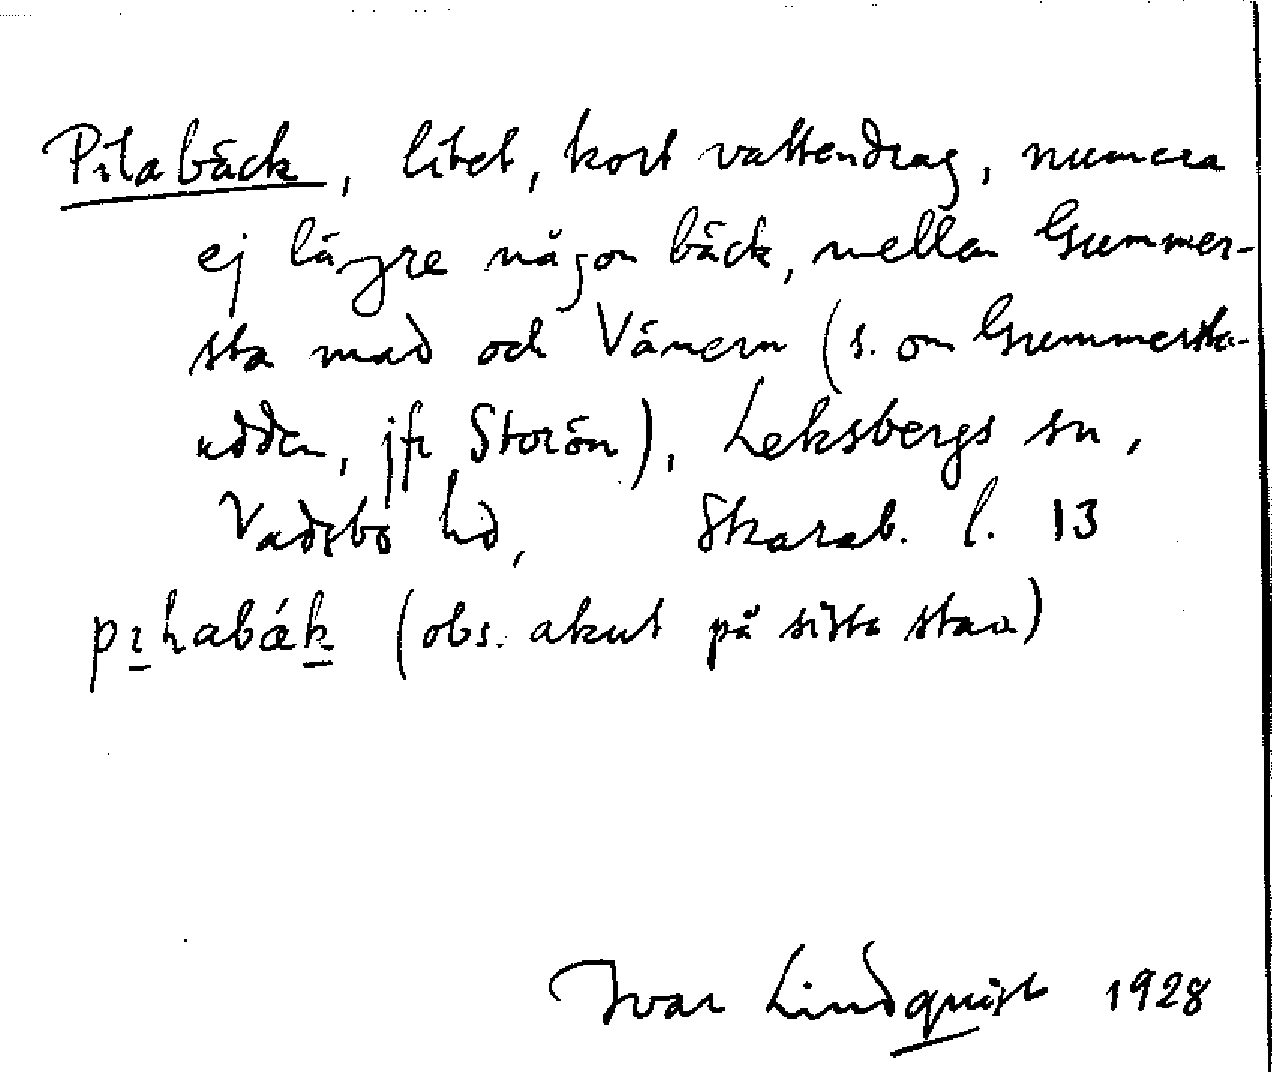 Pilabäck, litet, kort vattendrag, numera
ej längre någon bäck, mellan Gummer-
sta mad och Vänern (s. om Gummersta-
udden, jfr Storön), Leksbergs sn,
Vadsbo hd, Skarab. l. 13
(obs. akut på sista stav.)
Ivar Lindquist 1928